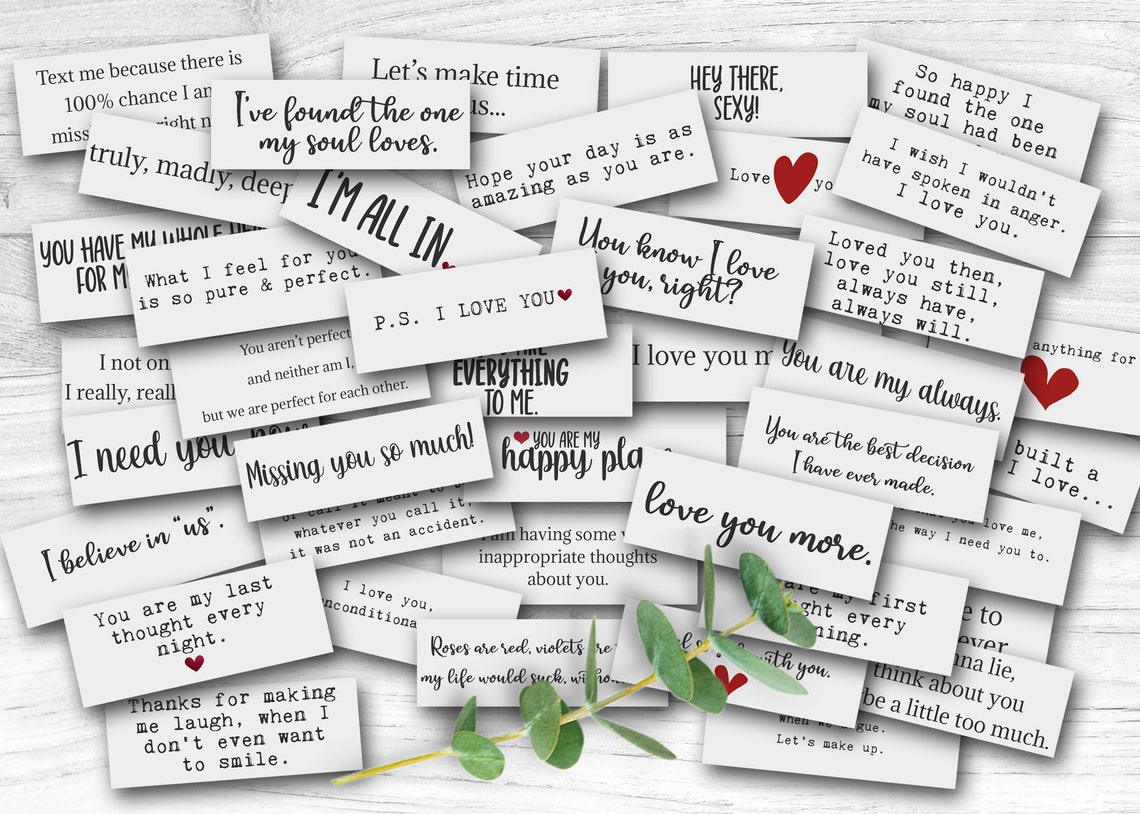 Text me because there is
100% chance I am
right
Let's make time
us...
HEY THERE,
SEXY!
So happy I
found the one
my soul had been
I've found the one
my soul loves.
truly, madly,
Hope your day is as
amazing as you are.
Love
I wish I wouldn't
have spoken in anger.
I love you.
I'M ALL IN.
YOU HAVE MY WHOLE
FOR
What I feel for you
is so pure & perfect.
P.S. I LOVE YOU
You know I love
you, right?
Loved you then,
love you still,
always have,
always will.
I not on
I really,
You aren't perfect
and neither am I,
but we are perfect for each other.
EVERYTHING
TO ME.
I love you
You are my always.
anything for
I need you now
Missing you so much!
YOU ARE MY
happy
You are the best decision
I have ever made.
built a
I love...
I believe in "us".
or call it meant to
whatever you call it,
it was not an accident.
having some
inappropriate thoughts
about you.
love you more.
you love me,
the way I need you to.
You are my last
thought every
night.
I love you,
Roses are red, violets are
my life would suck,
are my first
every
with you.
to
lie,
think about you
be a little too much.
Thanks for making
me laugh, when I
don't even want
to smile.
when we
Let's make up.